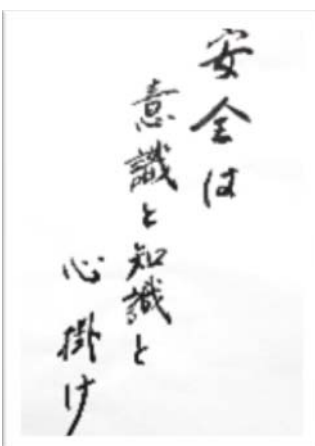 安全は
意識と知識と
心掛け